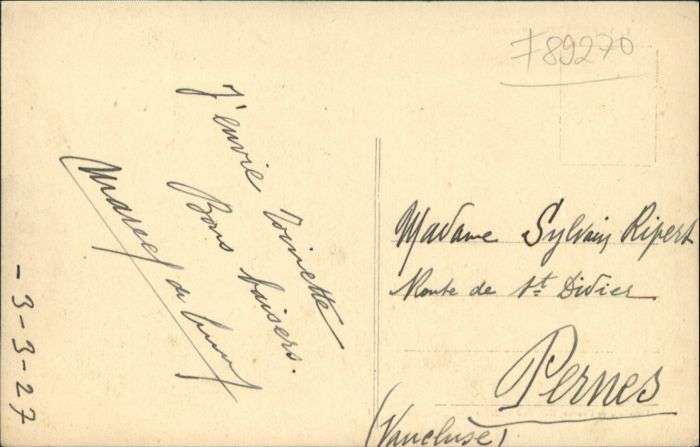 F89270
J'envie Toinette
Bons baisers.
Marcel
- 3 - 3 - 27
Madame Sylvain Ripert
Route de St Didier
Pernes
(Vaucluse)